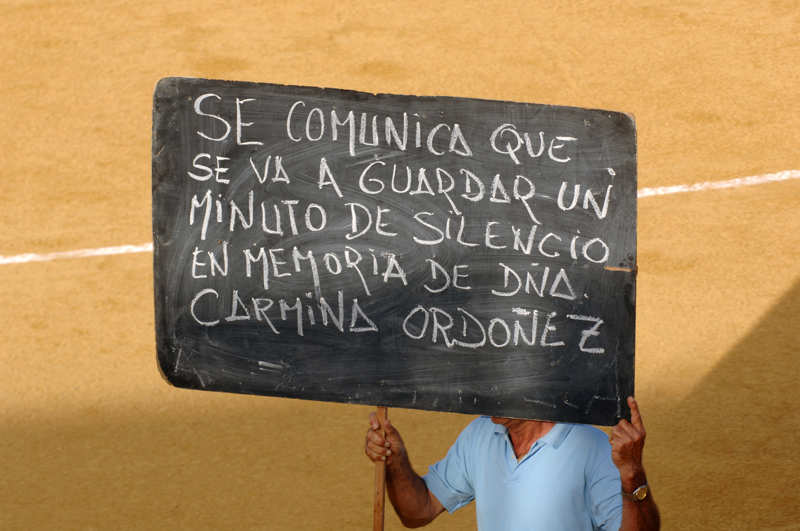 SE COMUNICA QUE
SE VA A GUARDAR UN
MINUTO DE SILENCIO
EN MEMORIA DE DÑA.
CARMINA ORDOÑEZ